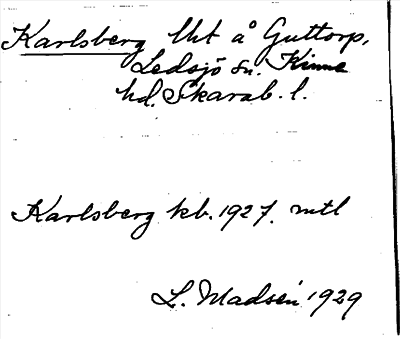 Karlsberg lht å Guttorp,
Ledsjö sn. Kinne
hd. Skarab. l.
Karlsberg kb. 1927. mtl
L. Madsén 1929